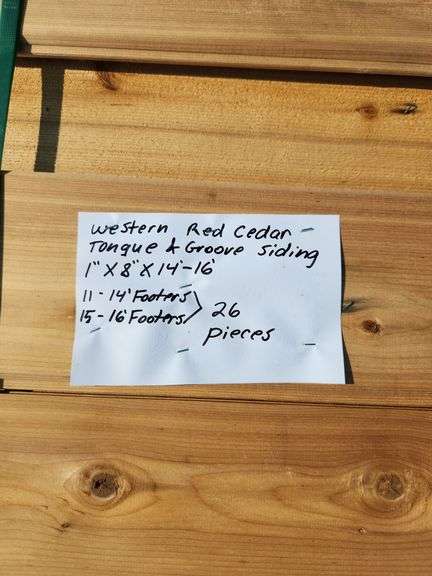 Western Red Cedar
Tongue & Groove Siding
1" X 8" X 14'-16'
11 - 14' Footers
15 - 16' Footers
26
pieces